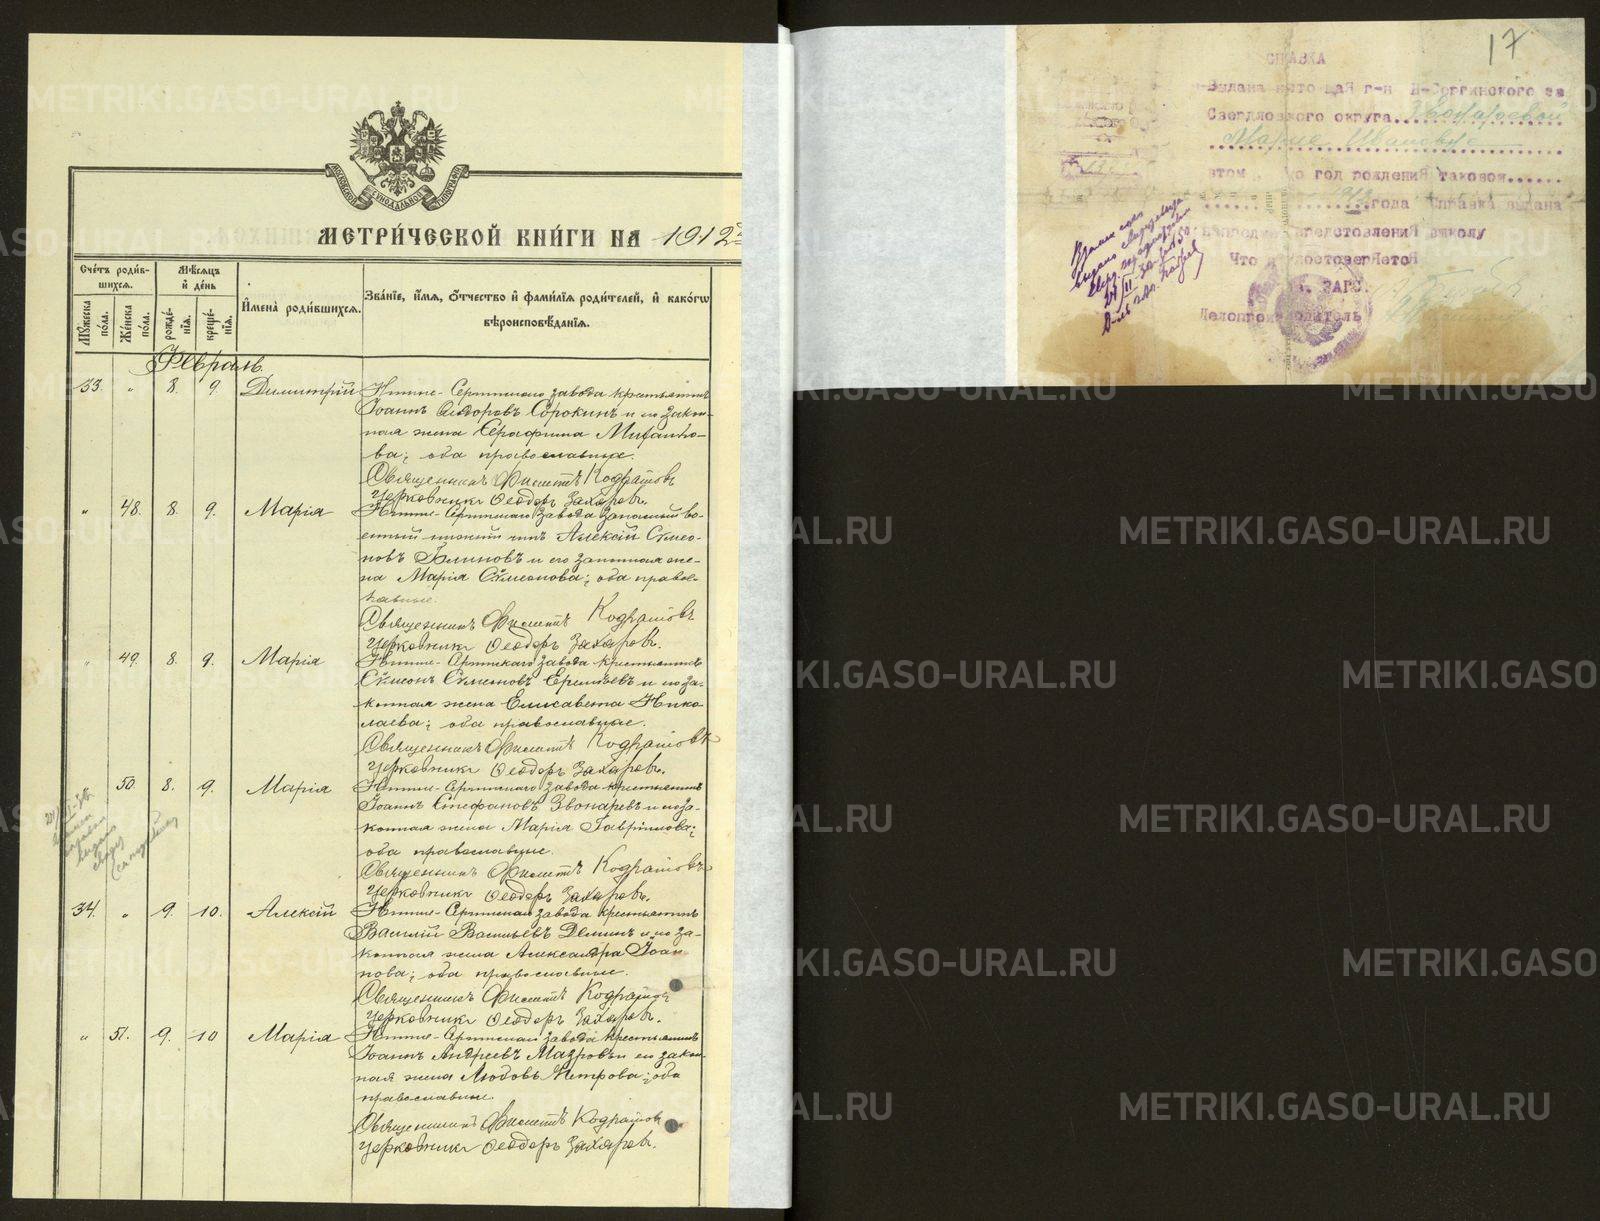 МОСКОВСКОЙ СѴНОДАЛЬНОЙ ТИПОГРАФІИ
МЕТРИ́ЧЕСКОЙ КНИ́ГИ НА 1912
Счётъ роди́в-
шихся.
Мꙋ́жеска по́ла.
Же́нска по́ла.
Мѣ́сяцъ и҆ де́нь
рожде́нїѧ.
креще́нїѧ.
И҆мена̀ роди́вшихся.
Зва́нїе, и҆́мѧ, ѻ҆́тчество и҆ фами́лїѧ роди́телей, и҆ како́гѡ
вѣроисповѣ́данїѧ.
Февраль.
33. " 8 9. Димитрій Нижне-Сергинскаго завода крестьянинъ
Іоаннъ Сидоровъ Сорокинъ и его закон-
ная жена Серафима Михаило-
ва; оба православные.
Священникъ Кодратовъ
Церковникъ Ѳеодоръ Захаровъ.
" 48. 8. 9. Марія Нижне-Сергинскаго завода запасный во-
енный нижній чинъ Алексій Сѵмео-
новъ Блиновъ и его законная же-
на Марія Сѵмеонова; оба правос-
лавные.
Священникъ Кодратовъ
Церковникъ Ѳеодоръ Захаровъ.
" 49. 8. 9. Марія Нижне-Сергинскаго завода крестьянинъ
Сѵмеонъ Сѵмеоновъ и его за-
конная жена Елисавета Нико-
лаева; оба православные.
Священникъ Кодратовъ
Церковникъ Ѳеодоръ Захаровъ.
50. 8. 9. Марія Нижне-Сергинскаго завода крестьянинъ
Іоаннъ Стефановъ Звонаревъ и его за-
конная жена Марія Гавріилова;
оба православные.
Священникъ Кодратовъ
Церковникъ Ѳеодоръ Захаровъ.
34. " 9. 10. Алексій Нижне-Сергинскаго завода крестьянинъ
Василій Васильевъ Деминъ и его за-
конная жена Александра Іоан-
нова; оба православные.
Священникъ Кодратовъ
Церковникъ Ѳеодоръ Захаровъ.
" 51. 9. 10 Марія Нижне-Сергинскаго завода крестьянинъ
Іоаннъ Андреевъ Мазровъ и его закон-
ная жена Любовь Петрова; оба
православные.
Священникъ Кодратовъ
Церковникъ Ѳеодоръ Захаровъ.
17
СПРАВКА
Выдана настоящая г-н Н-Сергинского за
Свердловского округа Звонаревой
Марие Ивановне
втом год рождения таковой......
1912 года Справка выдана
представления вшколу
Что и удостоверяется
ЗАГС.
Делопроизводитель
METRIKI.GASO-URAL.RU